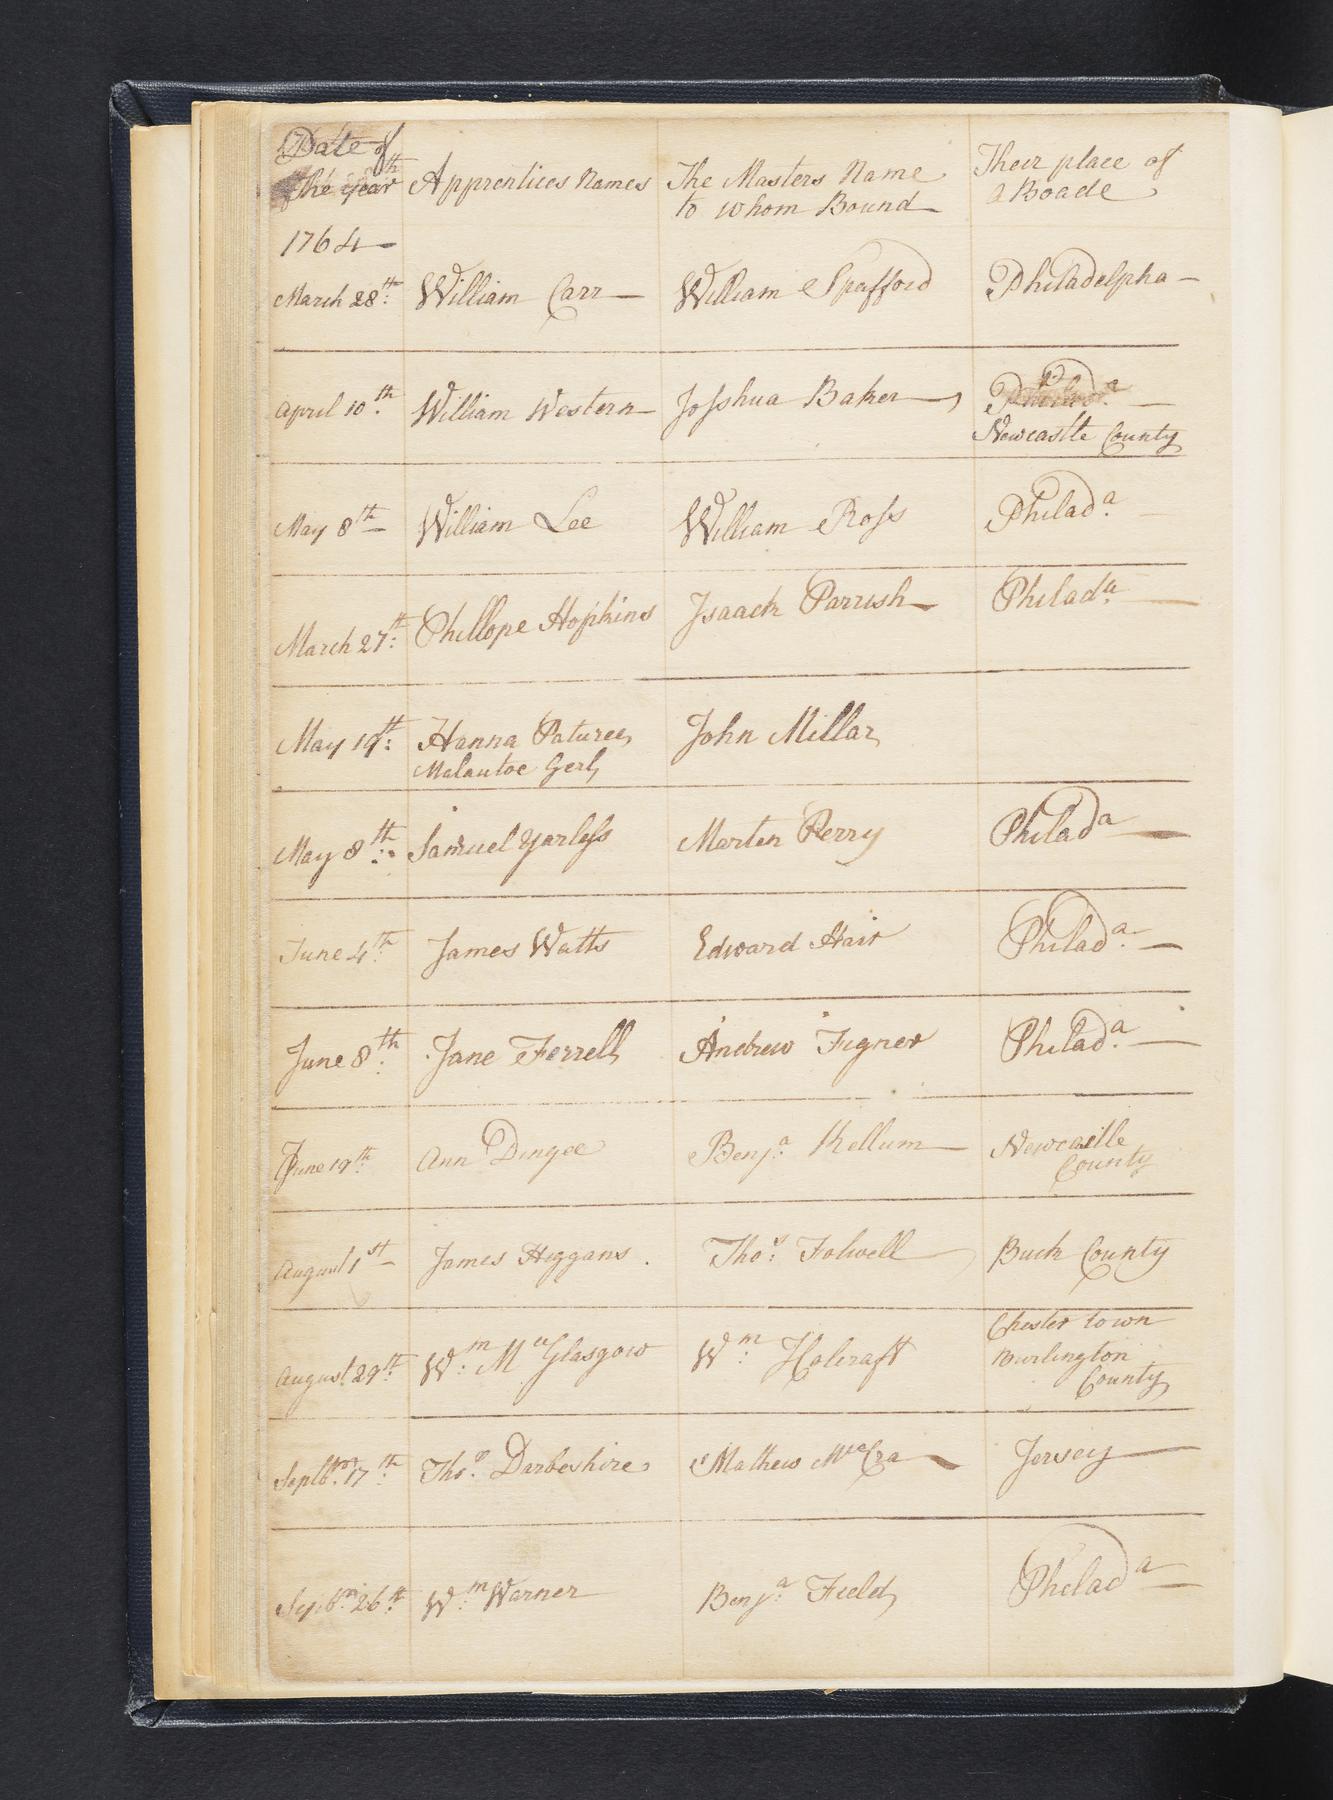 Date of
the year Apprentices Names The Masters Name Their place of
to whom Bound aBoade
1764
March 28th William Carr William Spafford Philadelpha
April 10th William Western Joshua Baker Philada
Newcastle County
May 8th William Lee William Ross Philada
March 27th Phillope Hopkins Isaack Parrish Philada
May 19th Hanna Paturee John Millar
Malautoe Gerl
May 8th Samuel Yarless Marten Perry Philada
June 4th James Watts Edward Hair Philada
June 8th Jane Ferrell Andrew Figner Philada
June 19th Ann Dingee Benja Kellum Newcastle
County
August 1st James Higgans Thos Folwell Buck County
Chester town
August 29th Wm Mc Glasgow Wm Holcraft Burlington
County
Septbr 17th Thos Darbeshire Mathew McCra Jersey
Septbr 26th Wm Warner Benja Field Philada